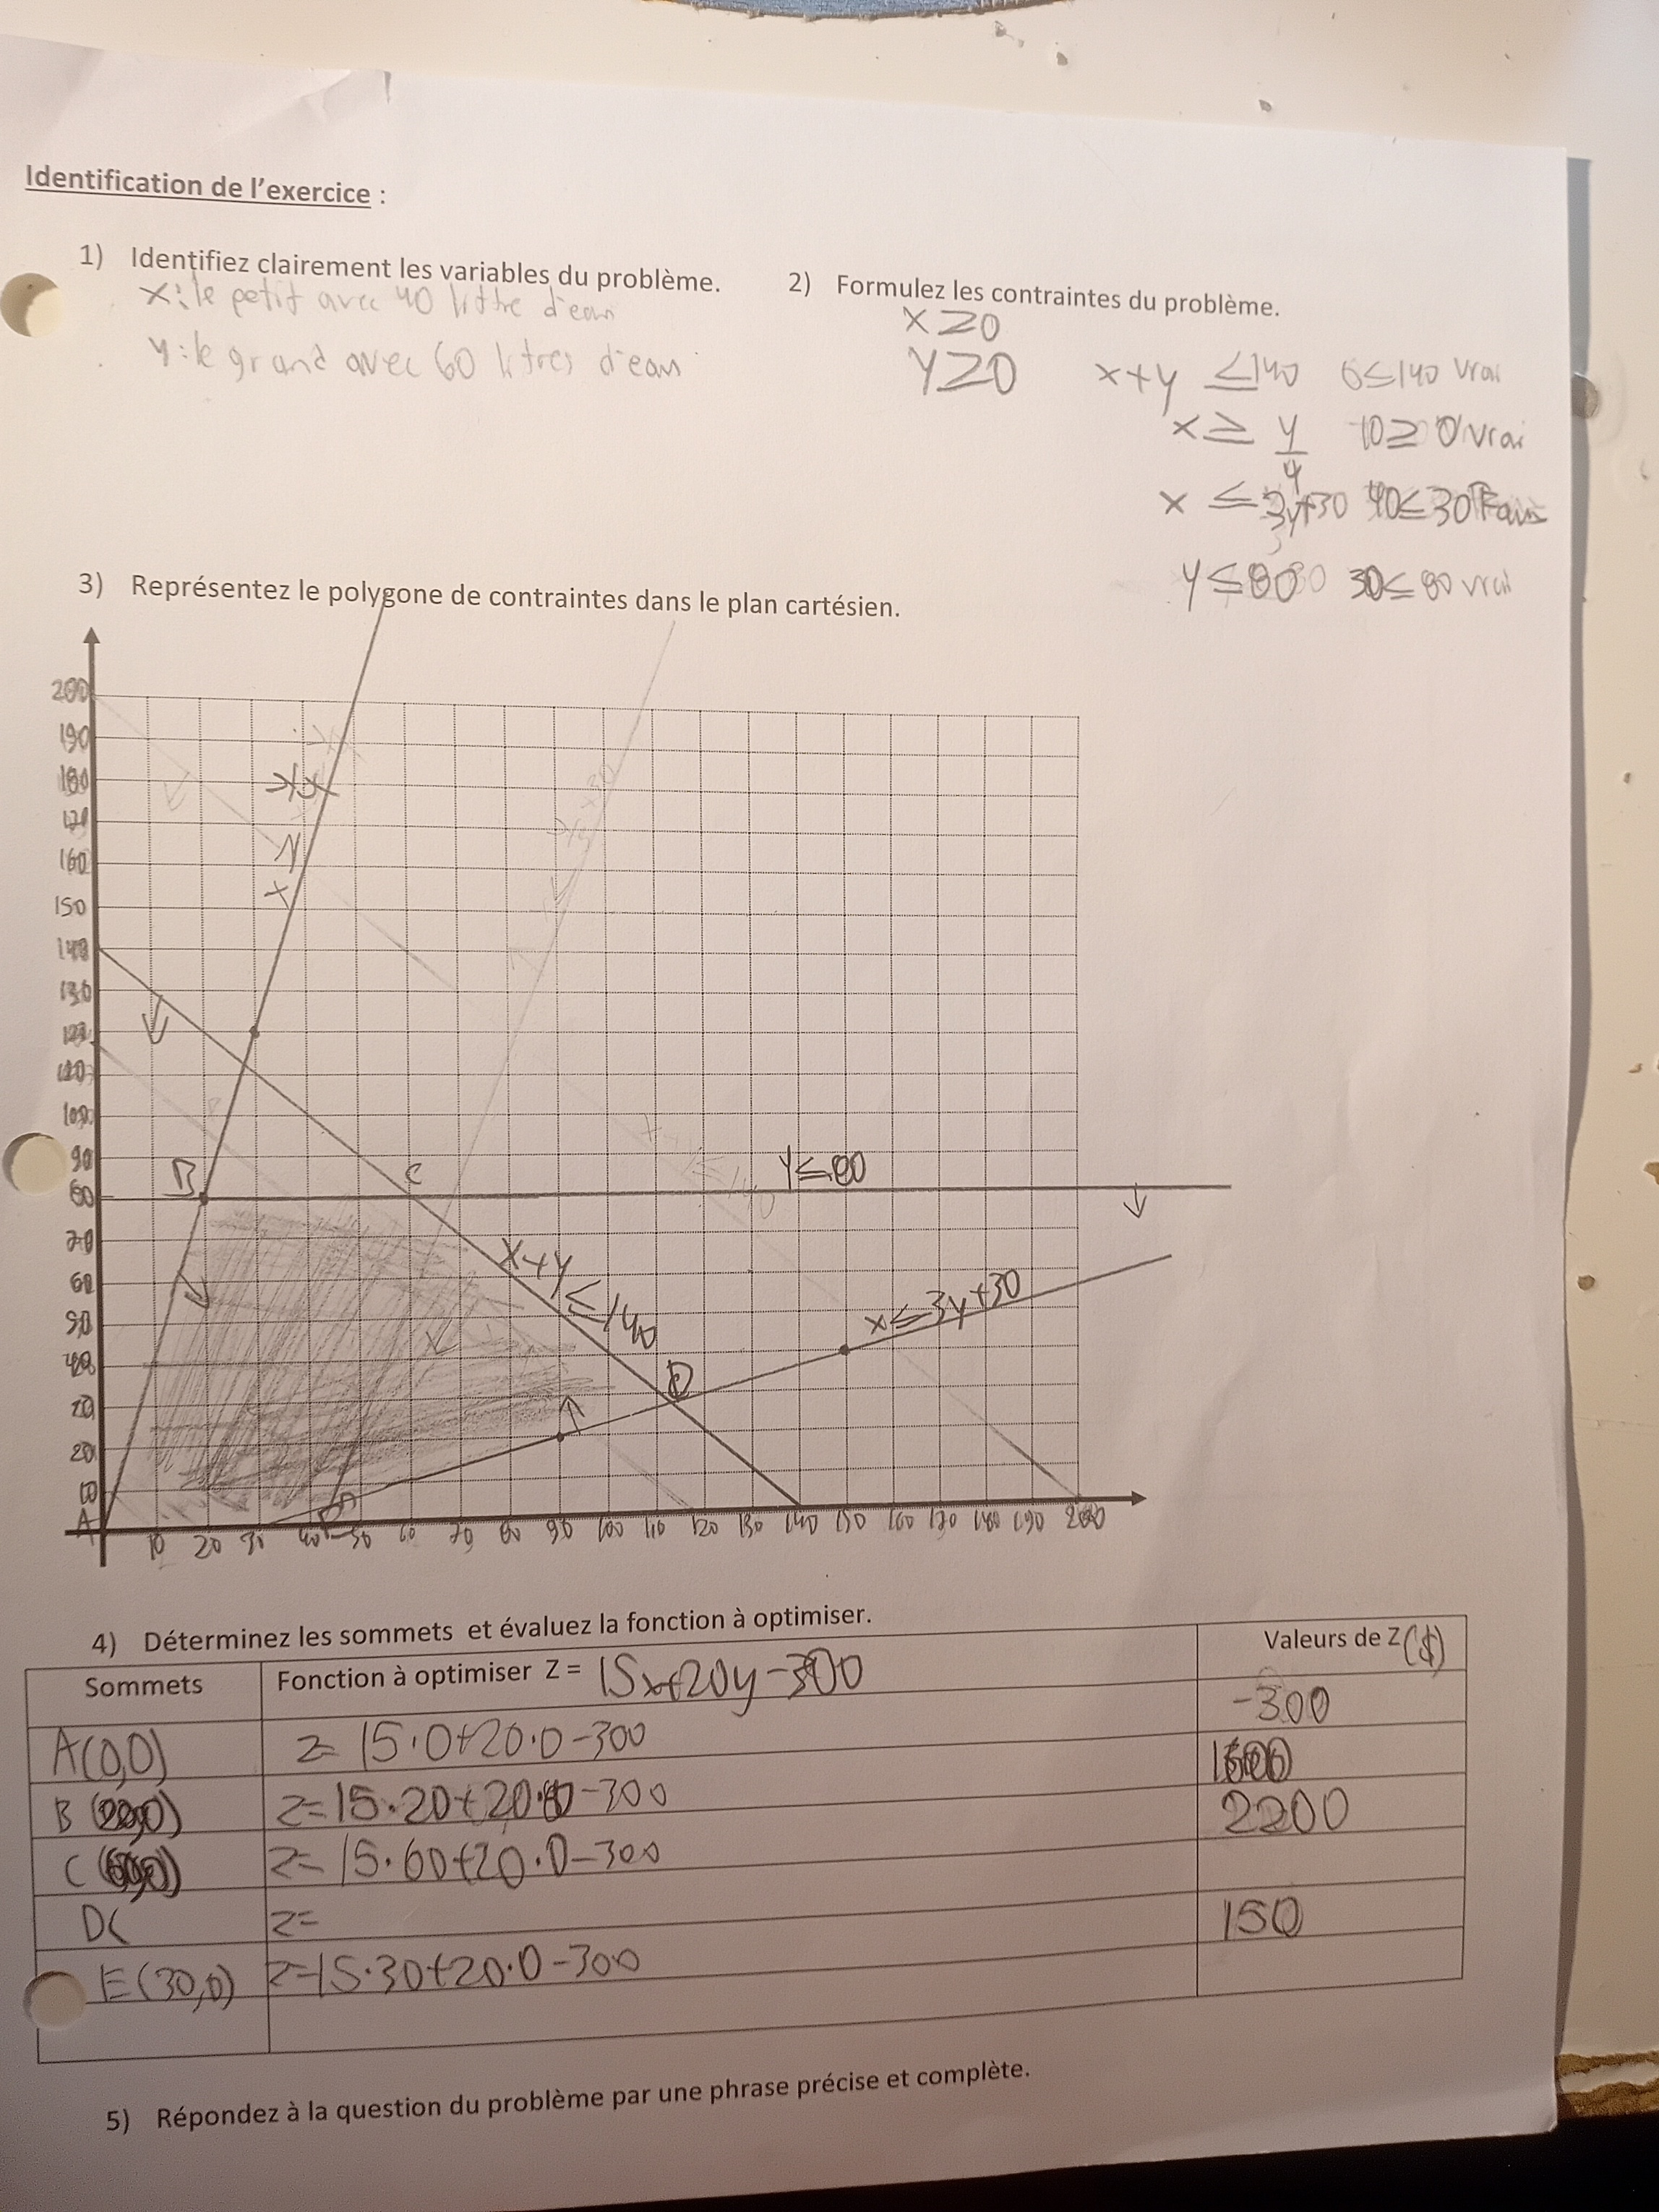 Identification de l'exercice :
1) Identifiez clairement les variables du problème.
x: le petit avec 40 littre d'eau
y: le grand avec 60 litres d'eau
2) Formulez les contraintes du problème.
x ≥ 0
y ≥ 0
x+y ≤ 140 0 ≤ 140 vrai
x ≥ y/4 10 ≥ 0 vrai
x ≤ 3y+30 40 ≤ 30 Faux
y ≤ 80 30 ≤ 80 vrai
3) Représentez le polygone de contraintes dans le plan cartésien.
200
190
180
160
150
140
130
90
80
70
60
40
20
10
B
C
y ≤ 80
x+y ≤ 140
x ≤ 3y+30
D
A
10 20 30 40 50 60 70 80 90 100 110 120 130 140 150 160 170 180 190 200
4) Déterminez les sommets et évaluez la fonction à optimiser.
Sommets Fonction à optimiser Z = 15x+20y-300 Valeurs de Z ($)
A(0,0) z= 15·0+20·0-300 -300
B z=15·20+20·80-300 1600
C z= 15·60+20·0-300 2200
D( z=
E(30,0) z=15·30+20·0-300 150
5) Répondez à la question du problème par une phrase précise et complète.